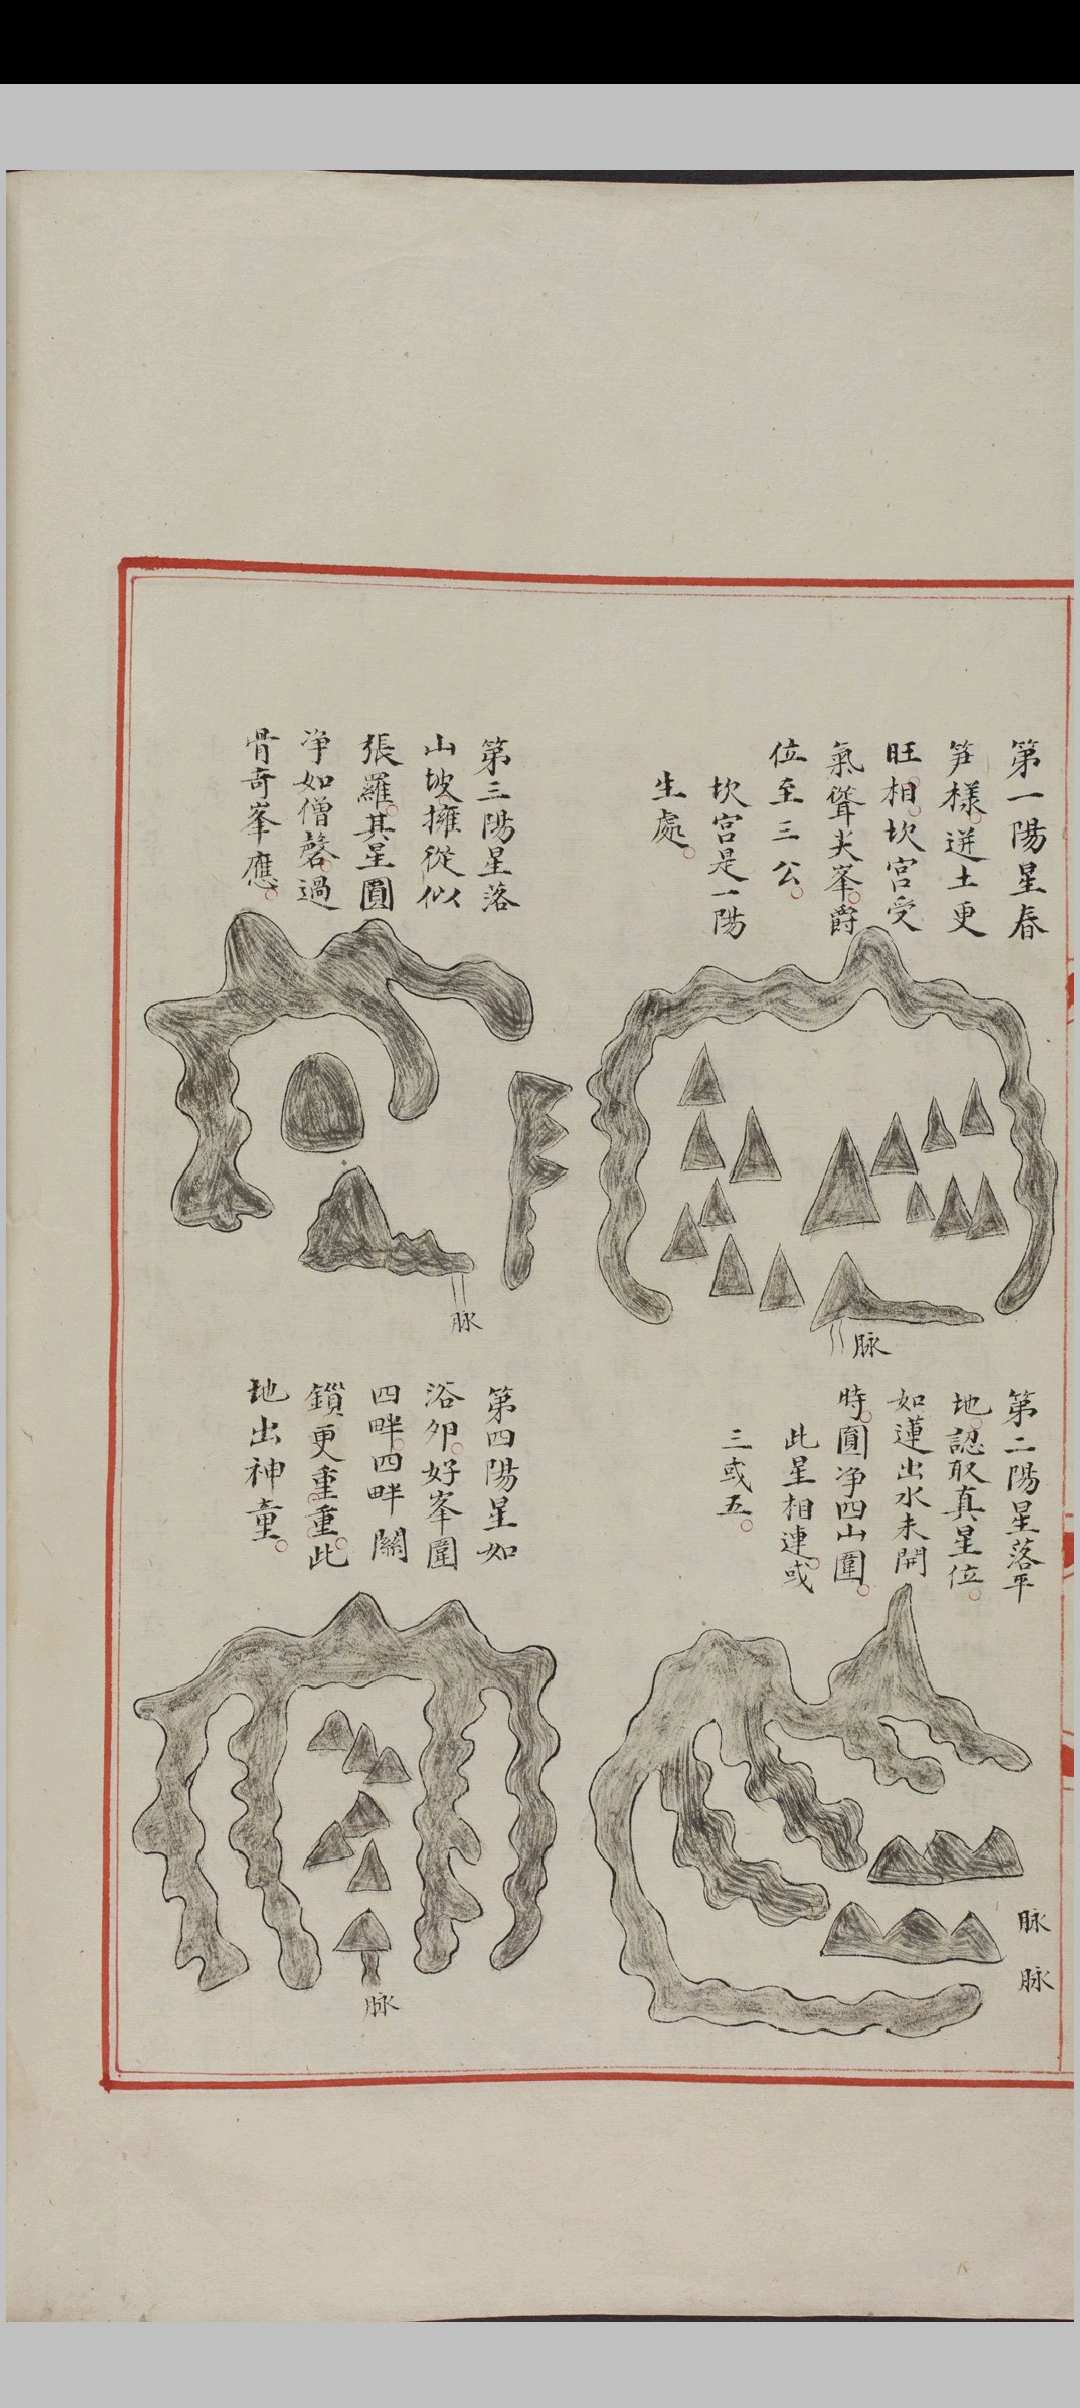 第一陽星春
笋樣迸土更
旺相坎宮受
氣聳尖峯爵
位至三公
坎宮是一陽
生處
脉
第二陽星落平
地認取真星位
如蓮出水未開
時圓净四山圍
此星相連或
三或五
脉
脉
第三陽星落
山坡擁從似
張羅其星圓
净如僧磬過
骨奇峯應
脉
第四陽星如
浴卵好峯圍
四畔四畔關
鎖更重重此
地出神童
脉